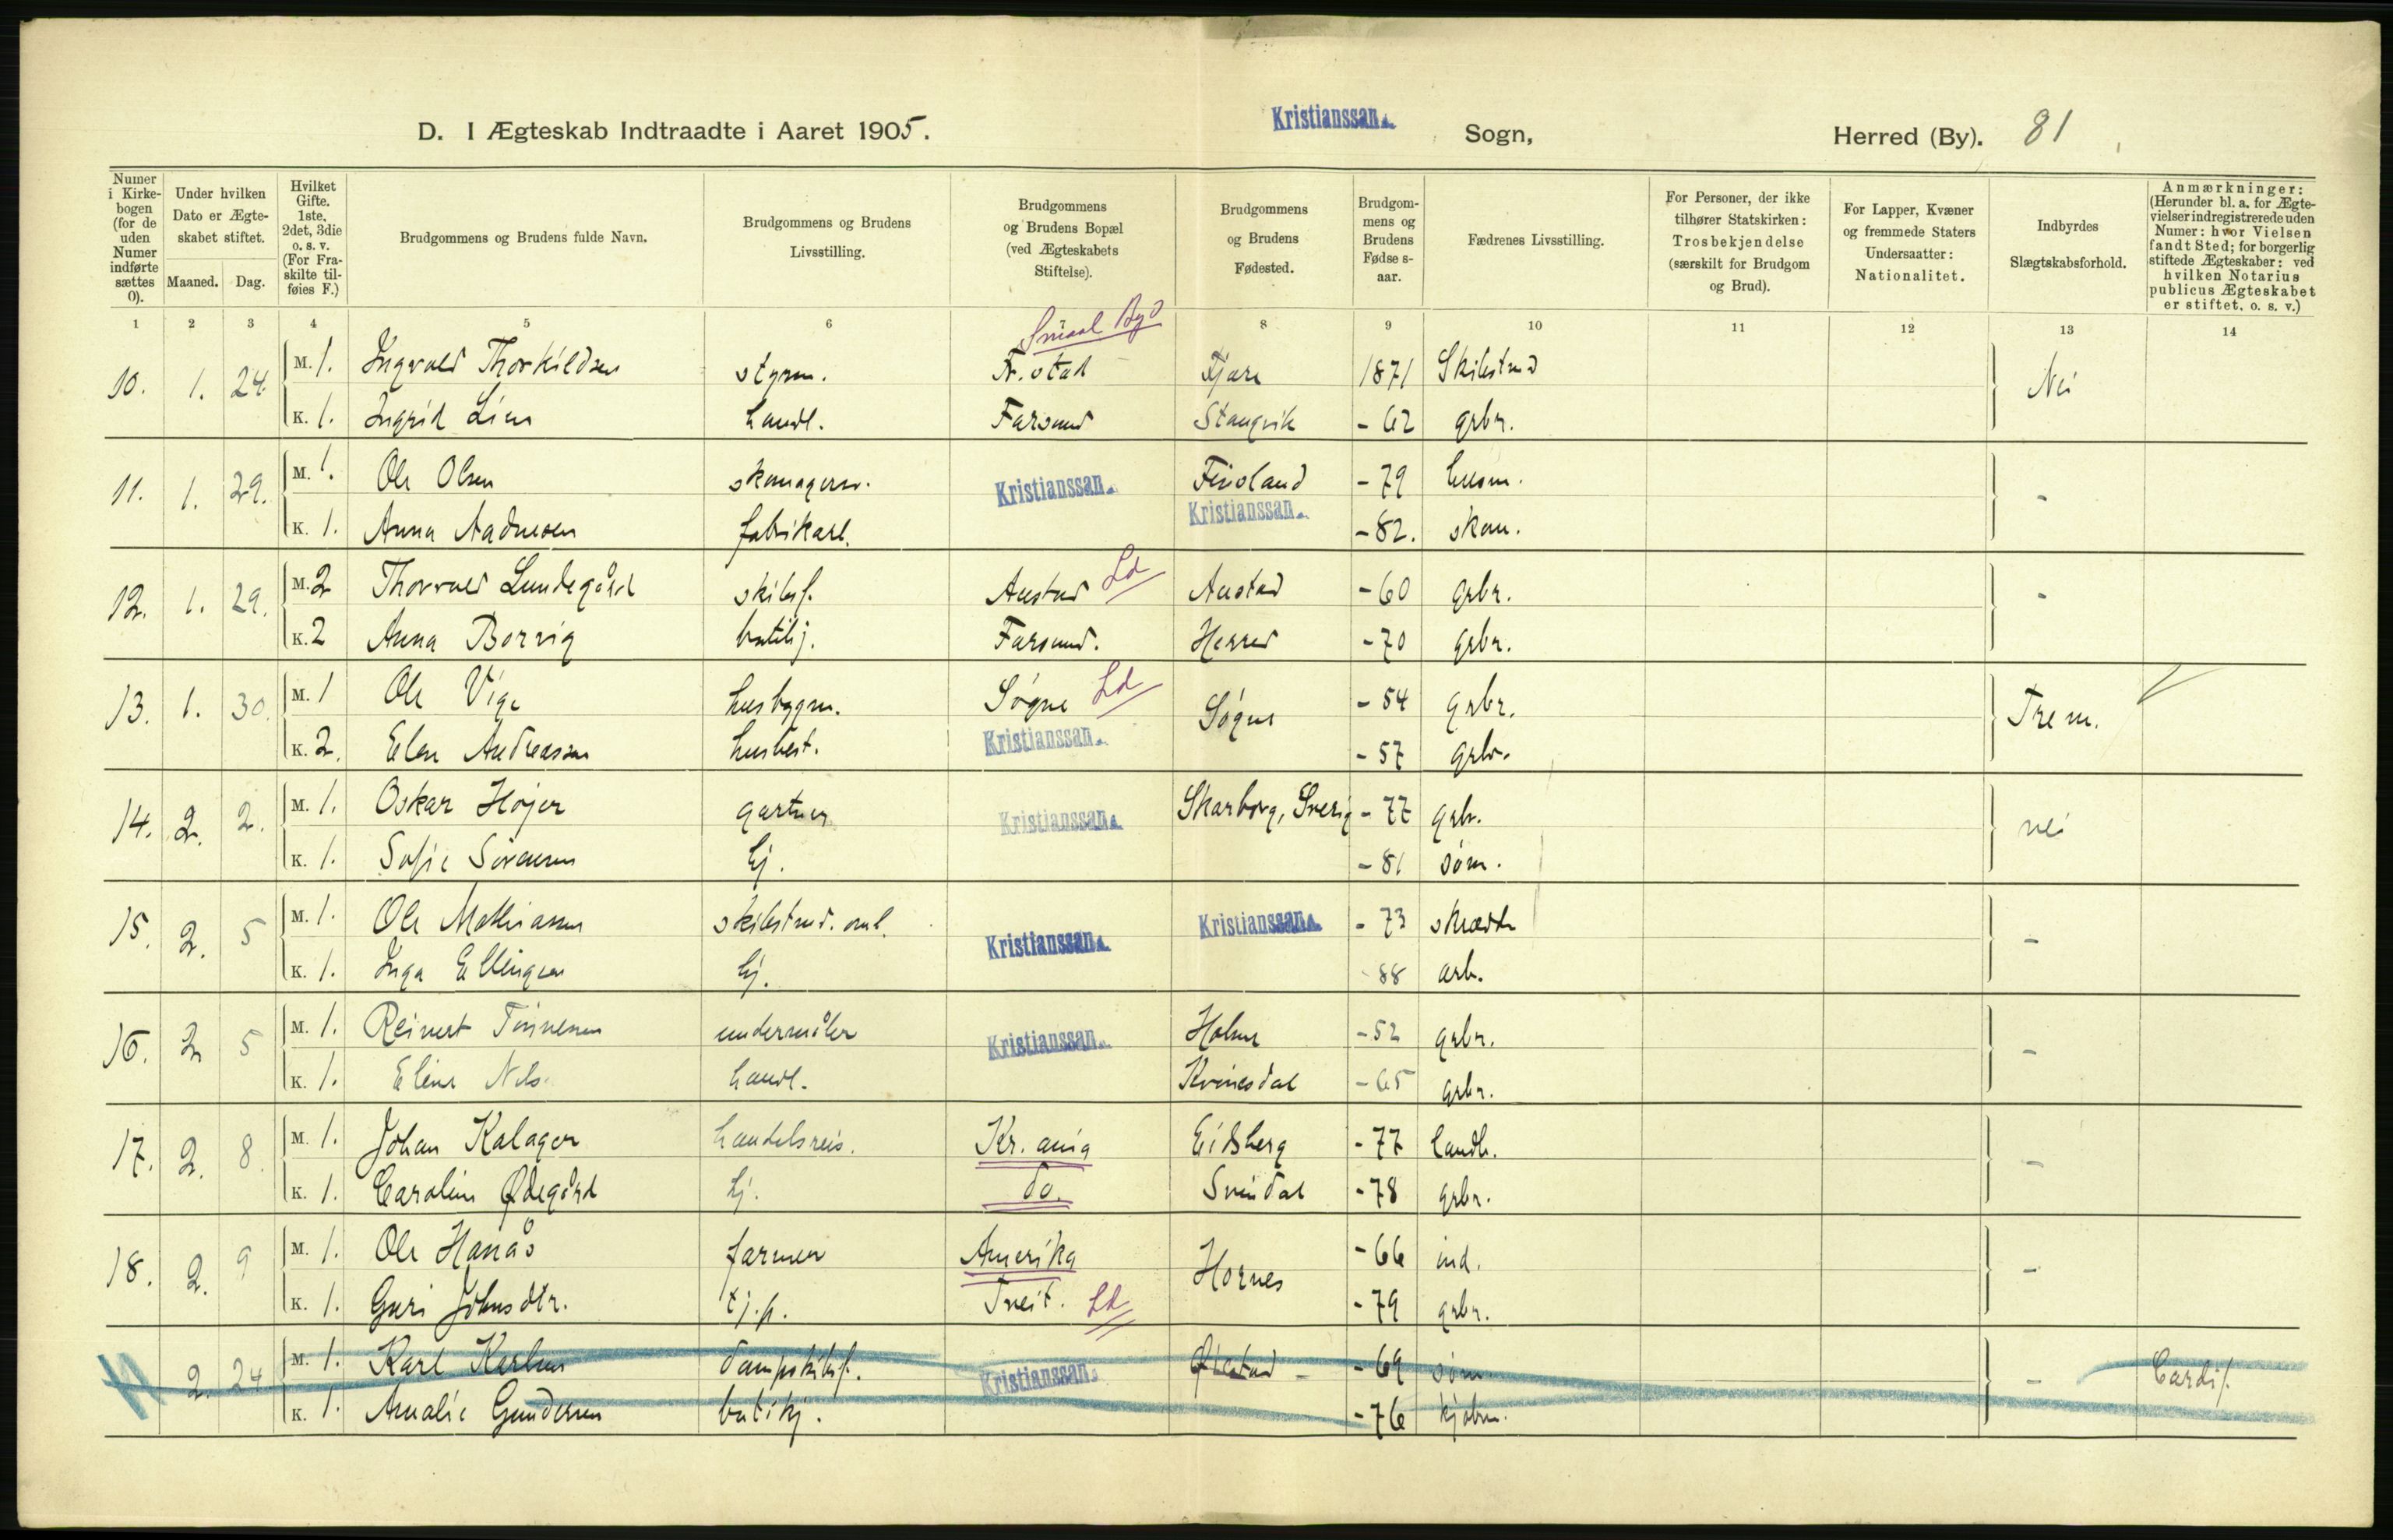 D. I Ægteskab Indtraadte i Aaret 1905. Kristianssan Sogn, Herred (By). 81
Numer i Kirkebogen (for de uden Numer indførte sættes 0).
Under hvilken Dato er Ægteskabet stiftet.
Maaned. Dag.
Hvilket Gifte. 1ste, 2det, 3die o. s. v. (For Fraskilte tilføies F.)
Brudgommens og Brudens fulde Navn.
Brudgommens og Brudens Livsstilling.
Brudgommens og Brudens Bopæl (ved Ægteskabets Stiftelse).
Brudgommens og Brudens Fødested.
Brudgommens og Brudens Fødselsaar.
Fædrenes Livsstilling.
For Personer, der ikke tilhører Statskirken: Trosbekjendelse (særskilt for Brudgom og Brud).
For Lapper, Kvæner og fremmede Staters Undersaatter: Nationalitet.
Indbyrdes Slægtskabsforhold.
Anmærkninger: (Herunder bl. a. for Ægtevielser indregistrerede uden Numer: hvor Vielsen fandt Sted; for borgerlig stiftede Ægteskaber: ved hvilken Notarius publicus Ægteskabet er stiftet. o. s. v.)
1 2 3 4 5 6 8 9 10 11 12 13 14
10. 1. 24. M. 1. Ingvald Thorkildsen styrm. Fr.stad Fjære 1871 Skibstmd Nei
K. 1. Ingrid Lien handl. Farsund Stangvik - 62 grbr.
11. 1. 29. M. 1. Ole Olsen skomagersv. Kristianssan Finsland - 79 husm. -
K. 1. Anna Aadnesen fabrikarb. Kristianssan - 82. skom.
12. 1. 29. M. 2 Thorvald Lundegård skibsf. Austad Ld Austad - 60 grbr. -
K. 2 Anna Borvig butikj. Farsund. Herred - 70 grbr.
13. 1. 30. M. 1 Ole Vige husbygm. Søgne Ld Søgne - 54 grbr. Trem.
K. 2. Elen Andreassen husbest. Kristianssan - 57 grbr.
14. 2. 2. M. 1. Oskar Höjer gartner Kristianssan Skarborg, Sverig - 77 grbr. nei
K. 1. Sofie Sørensen hj. - 81 søm.
15. 2. 5 M. 1. Ole Mathiassen skibstmd. Kristianssan Kristianssan - 73 skrædder -
K. 1. Inga Ellingsen hj. - 88 arb.
16. 2 5 M. 1. Reinert Tønnesen undermåler Kristianssan Holme - 52 grbr. -
K. 1. Eline Nils. handl. Kvinesdal - 65 grbr.
17. 2. 8. M. 1. Johan Kalager handelsreis. Kr.ania Eidsberg - 77 landh. -
K. 1. Caroline Ødegård hj. do. Svindal - 78 grbr.
18. 2. 9 M. 1. Ole Hanås farmer Amerika Hornes - 66 ind. -
K. 1. Guri Johnsdtr. tj.p. Tveit. Ld - 79 grbr.
2. 24 M. 1. Karl Karlsen dampskibsf. Kristianssan Øiestad - 69 søm. - Cardif.
K. 1. Amalie Gundersen butikj. - 76 kjøbm.